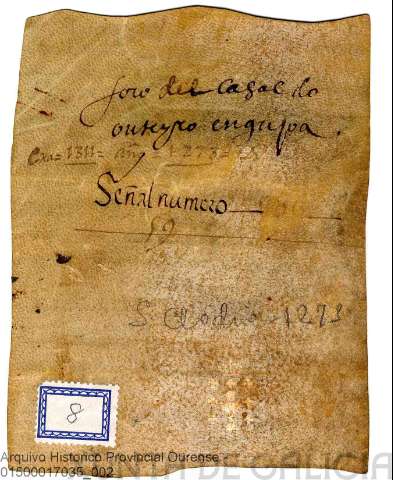 foro del casal do
outeyro en gujoa.
Era = 1311 = año = 1273 =
Señal numero
59
S. Clodio - 1273
8
Arquivo Historico Provincial Ourense
01500017035_002
XUNTA DE GALICIA